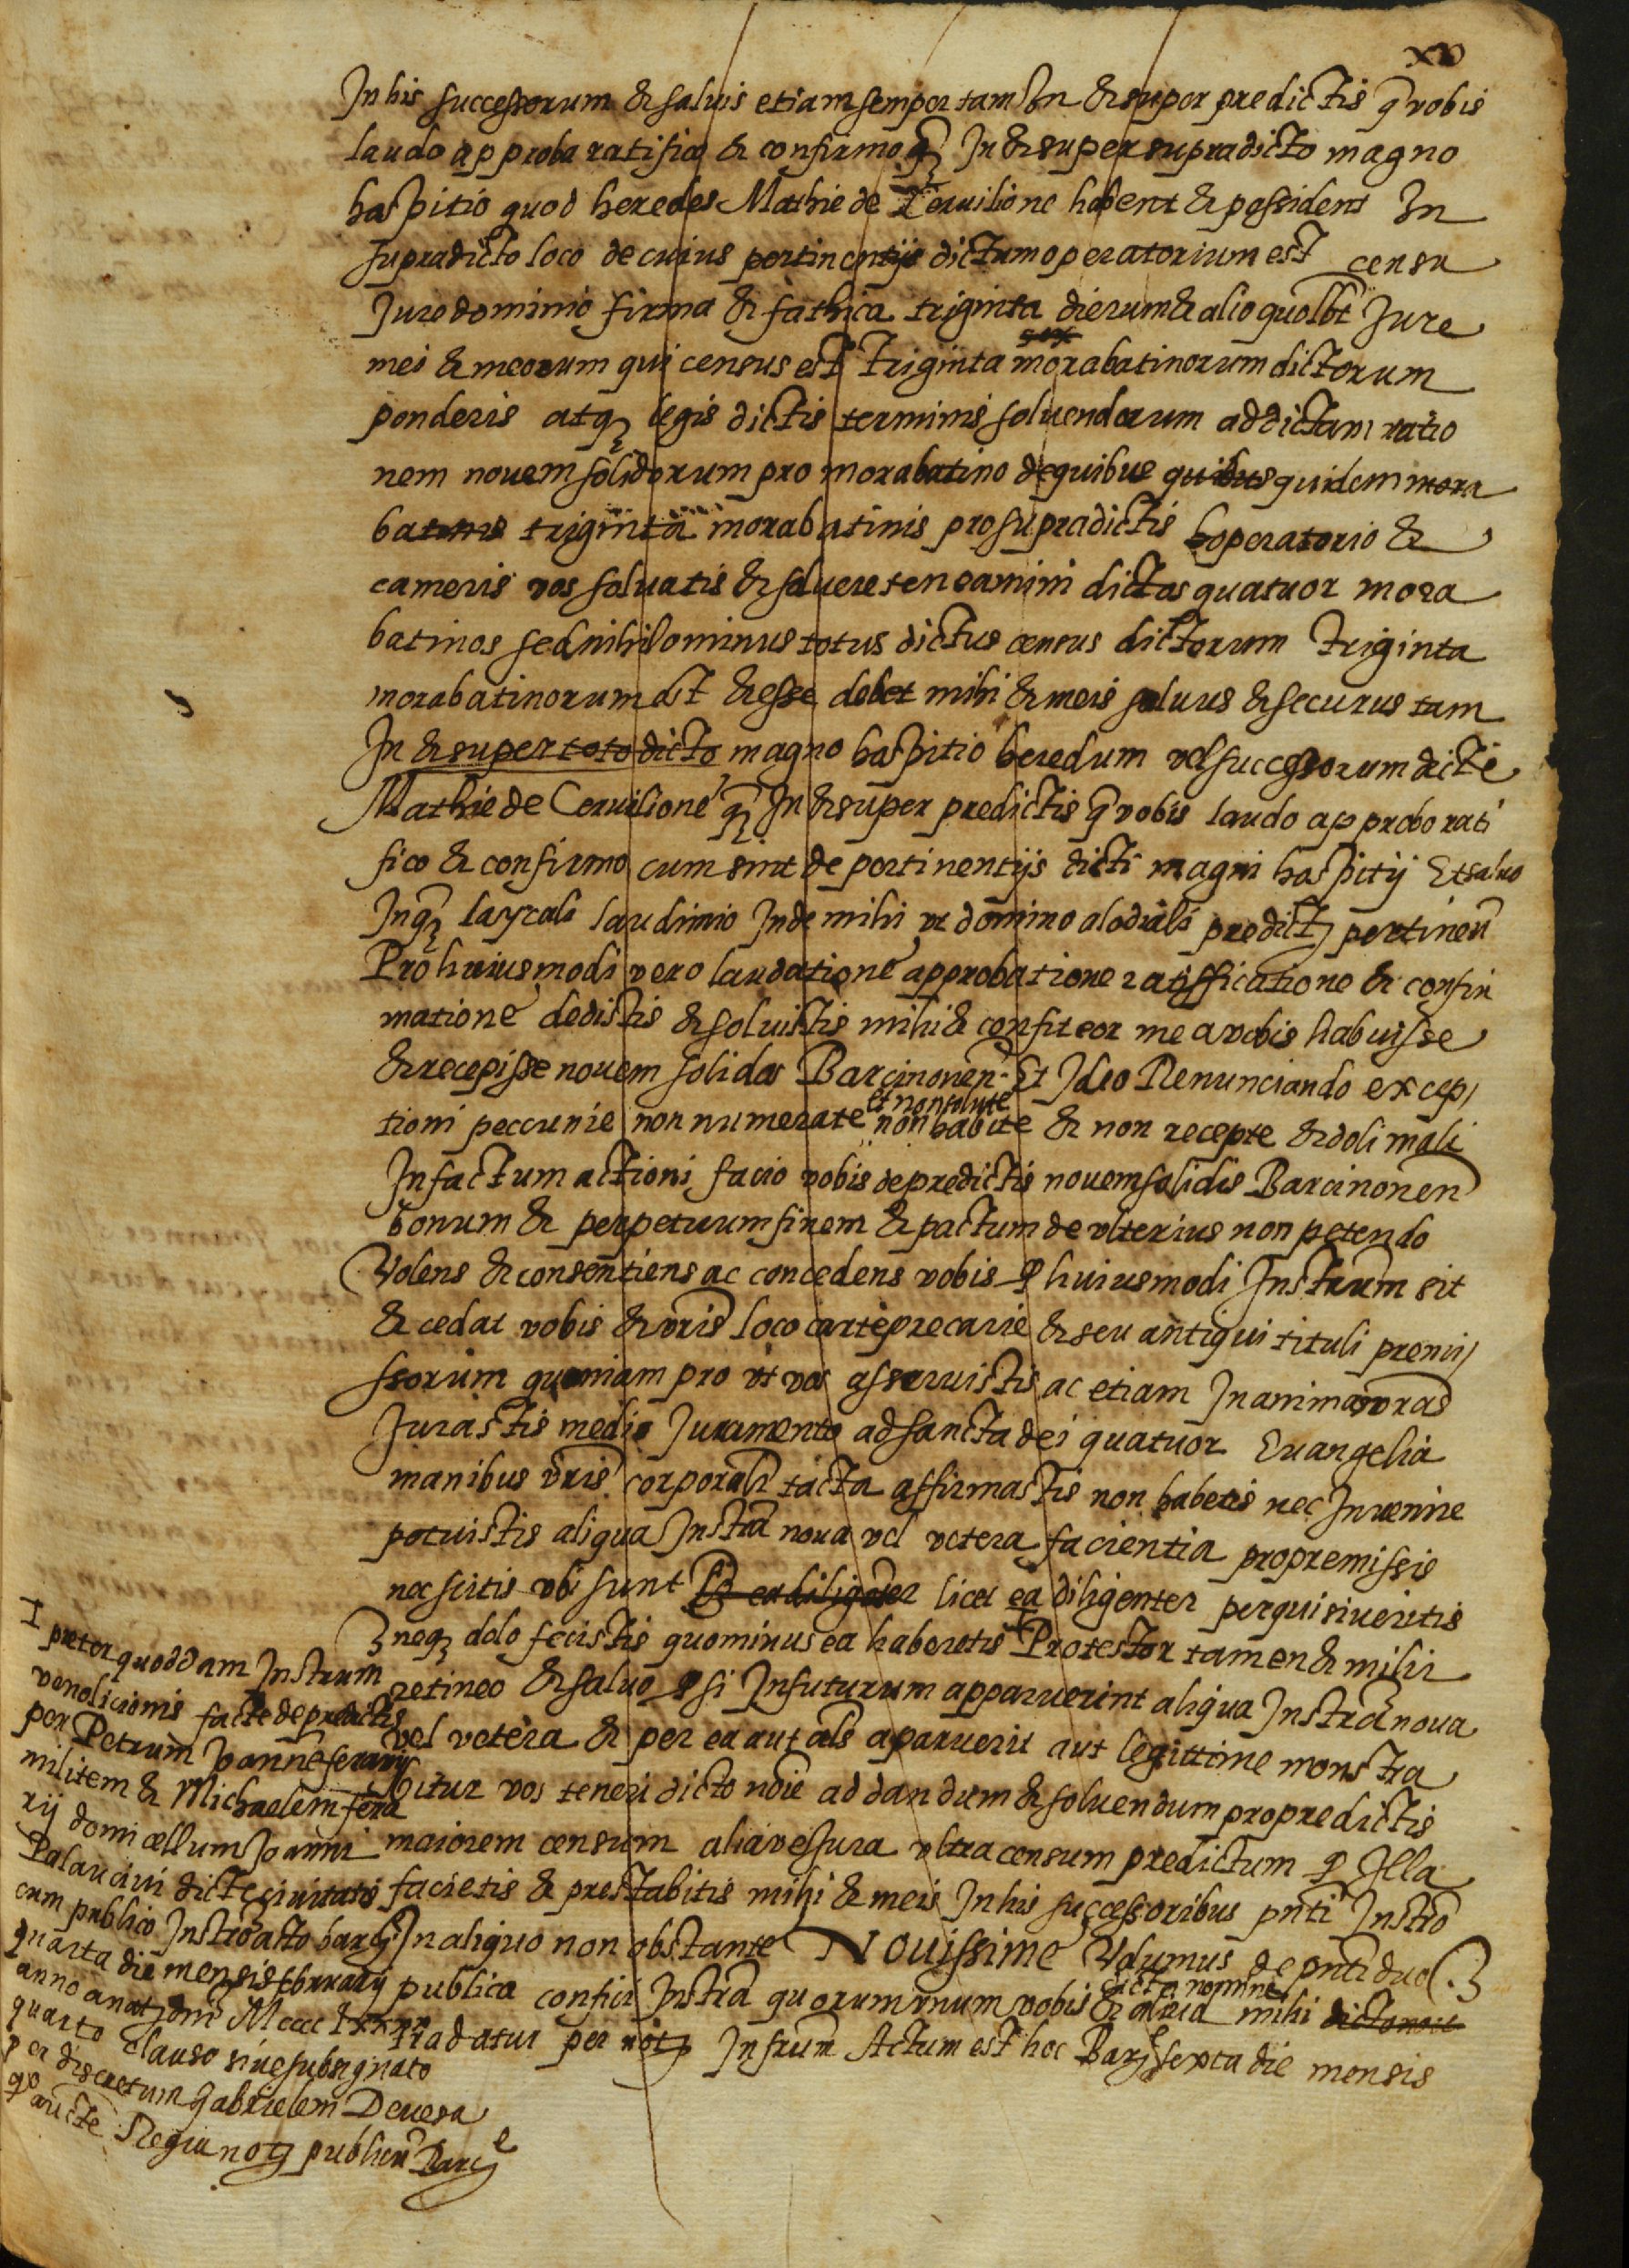 xv
In his successorum & saluis etiam semper tam In & super predictis q vobis
laudo approbo ratifico & confirmo qz In & super supradicto magno
haspitio quod heredes Mathie de Ceruilione habent & possident In
supradicto loco de cuius pertinentijs dictum operatorium est censu
Jure dominio firma & fathica triginta dierum & alio quolibt Jure
mei & meorum qui census est Triginta morabatinorum dictorum
ponderis atqz legis dictis terminis soluendorum ad dictam ratio
nem nouem solidorum pro morabatino de quibus quibus quidem mora
batinis triginta morabatinis pro supradictis hoperatorio &
cameris vos soluatis & soluere teneamini dictos quatuor mora
batinos sed nihilominus totus dictus census dictorum Triginta
morabatinorum est & esse debet mihi & meis saluus & securus tam
In & super toto dicto magno haspitio heredum vel successorum dicte
Mathie de Ceruilione qz In & super predictis q vobis laudo approbo rati
fico & confirmo cum sint de pertinentijs dicti magni haspitij Et saluo
Inqz layrali laudimio Inde mihi vt domino alodiali predictz pertinen
Pro huiusmodi vero laudatione approbatione ratifficatione & confir
matione dedistis & soluistis mihi & confiteor me a vobis habuisse
& recepisse nouem solidos Barcinonen. Et Ideo Renunciando excep
tioni peccunie non numerate et non solute non habite & non recepte & doli mali
In factum actioni facio vobis de predictis nouem solidis Barcinonen
bonum & perpetuum finem & pactum de vlterius non petendo
Volens & consentiens ac concedens vobis q huiusmodi Instrum sit
& cedat vobis & vris loco carte precarie & seu antiqui tituli premi
ssorum quoniam pro vt vos asseruistis ac etiam In animas vras
Jurastis medio Juramento ad sancta dei quatuor Euangelia
manibus vris corporali tacta affirmastis non habetis nec Inuenire
potuistis aliqua Instra noua vel vetera facientia pro premissis
nec scitis vbi sunt licet ea diligenter perquisiueritis
neqz dolo fecistis quominus ea haberetis Protestor tamen & mihi
retineo & saluo q si In futurum apparuerint aliqua Instra noua
vel vetera & per ea aut als aparuerit aut legittime monstra
bitur vos teneri dicto noie ad dandum & soluendum pro predictis
maiorem censum alia ve Jura vltra censum predictum q Illa
facietis & prestabitis mihi & meis In his successoribus pnti Instro
In aliquo non obstante Nouissime Volumus de pnti duo
publica confici Instra quorum vnum vobis & aliud dicto nomine mihi dicto noie
tradatur per notz Infrum Actum est hoc Barz sexta die mensis
I preter quoddam Instrum
vendicionis facte de predictis
per Petrum Joanne ferrarij
militem & Michaelem ferra
rij domicellum Joanni
Palauicini dicte ciuitatis
cum publico Instro acto barz
quarta die mensis februarij
anno a nat dni M cccc Lxxx
quarto clauso siue subsignato
per discretum Gabrielem Deuesa
aucte Regia notz publicu Barz